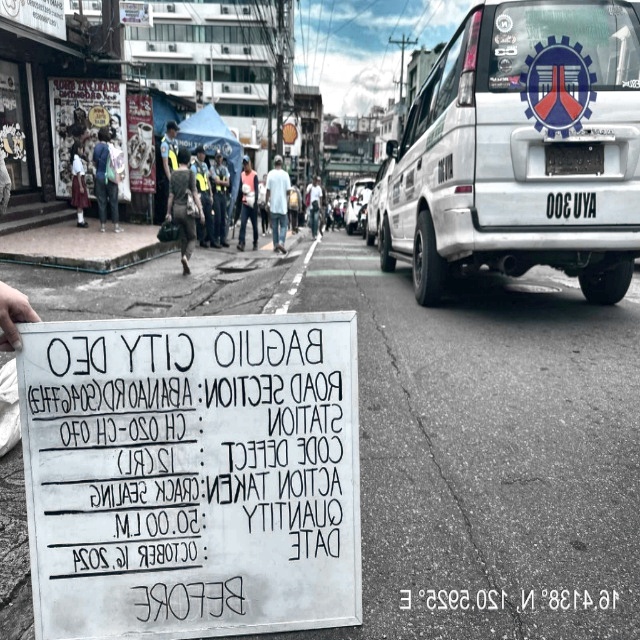 BAGUIO CITY DEO
ROAD SECTION: ABANAO RD (S046TH)
STATION : CH 020 - CH 070
CODE DEFECT : 12 (RL)
ACTION TAKEN: CRACK SEALING
QUANTITY : 50.00 L.M.
DATE : OCTOBER 16, 2024
BEFORE
AYU 300
16.4138° N, 120.5925° E